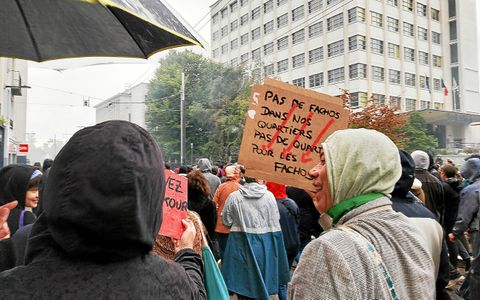 PAS DE FACHOS
DANS NOS
QUARTIERS
PAS DE QUART
POUR LES
FACHOS
VEZ
KOUR